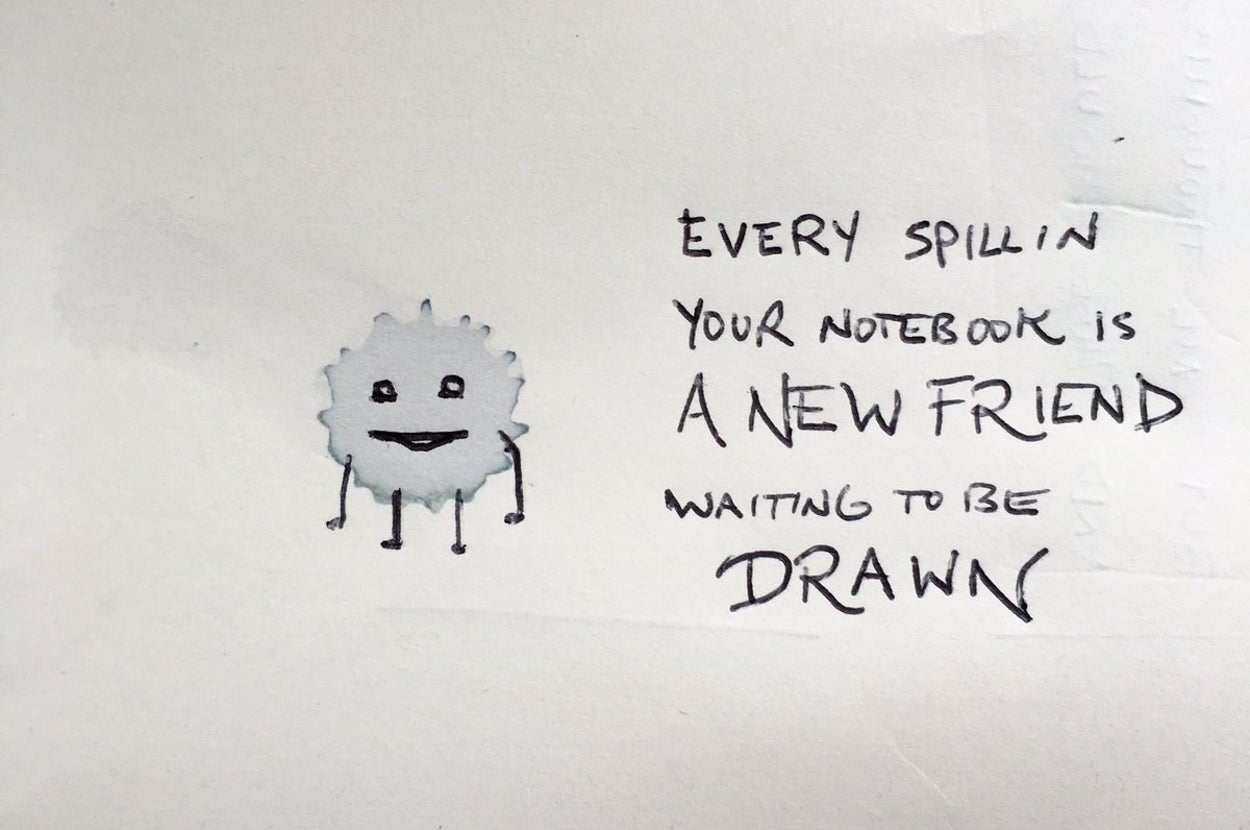 EVERY SPILL IN
YOUR NOTEBOOK IS
A NEW FRIEND
WAITING TO BE
DRAWN